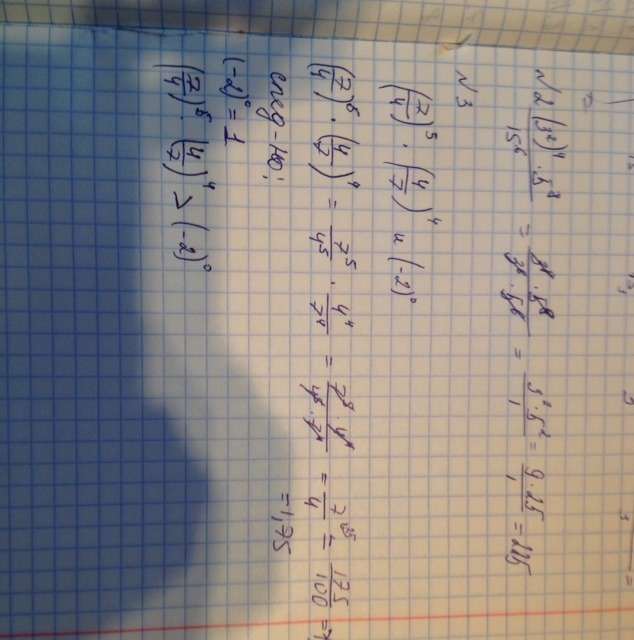 N2 (3²)⁴ · 5⁸ / 15⁶ = 3⁸ · 5⁸ / 3⁶ · 5⁶ = 3² · 5² / 1 = 9 · 25 / 1 = 225
N3
(7/4)⁵ · (4/7)⁴ и (-2)⁰
(7/4)⁵ · (4/7)⁴ = 7⁵/4⁵ · 4⁴/7⁴ = 7⁵ · 4⁴ / 4⁵ · 7⁴ = 7/4 ²⁵ = 175/100 =
= 1,75
след-но:
(-2)⁰ = 1
(7/4)⁵ · (4/7)⁴ > (-2)⁰